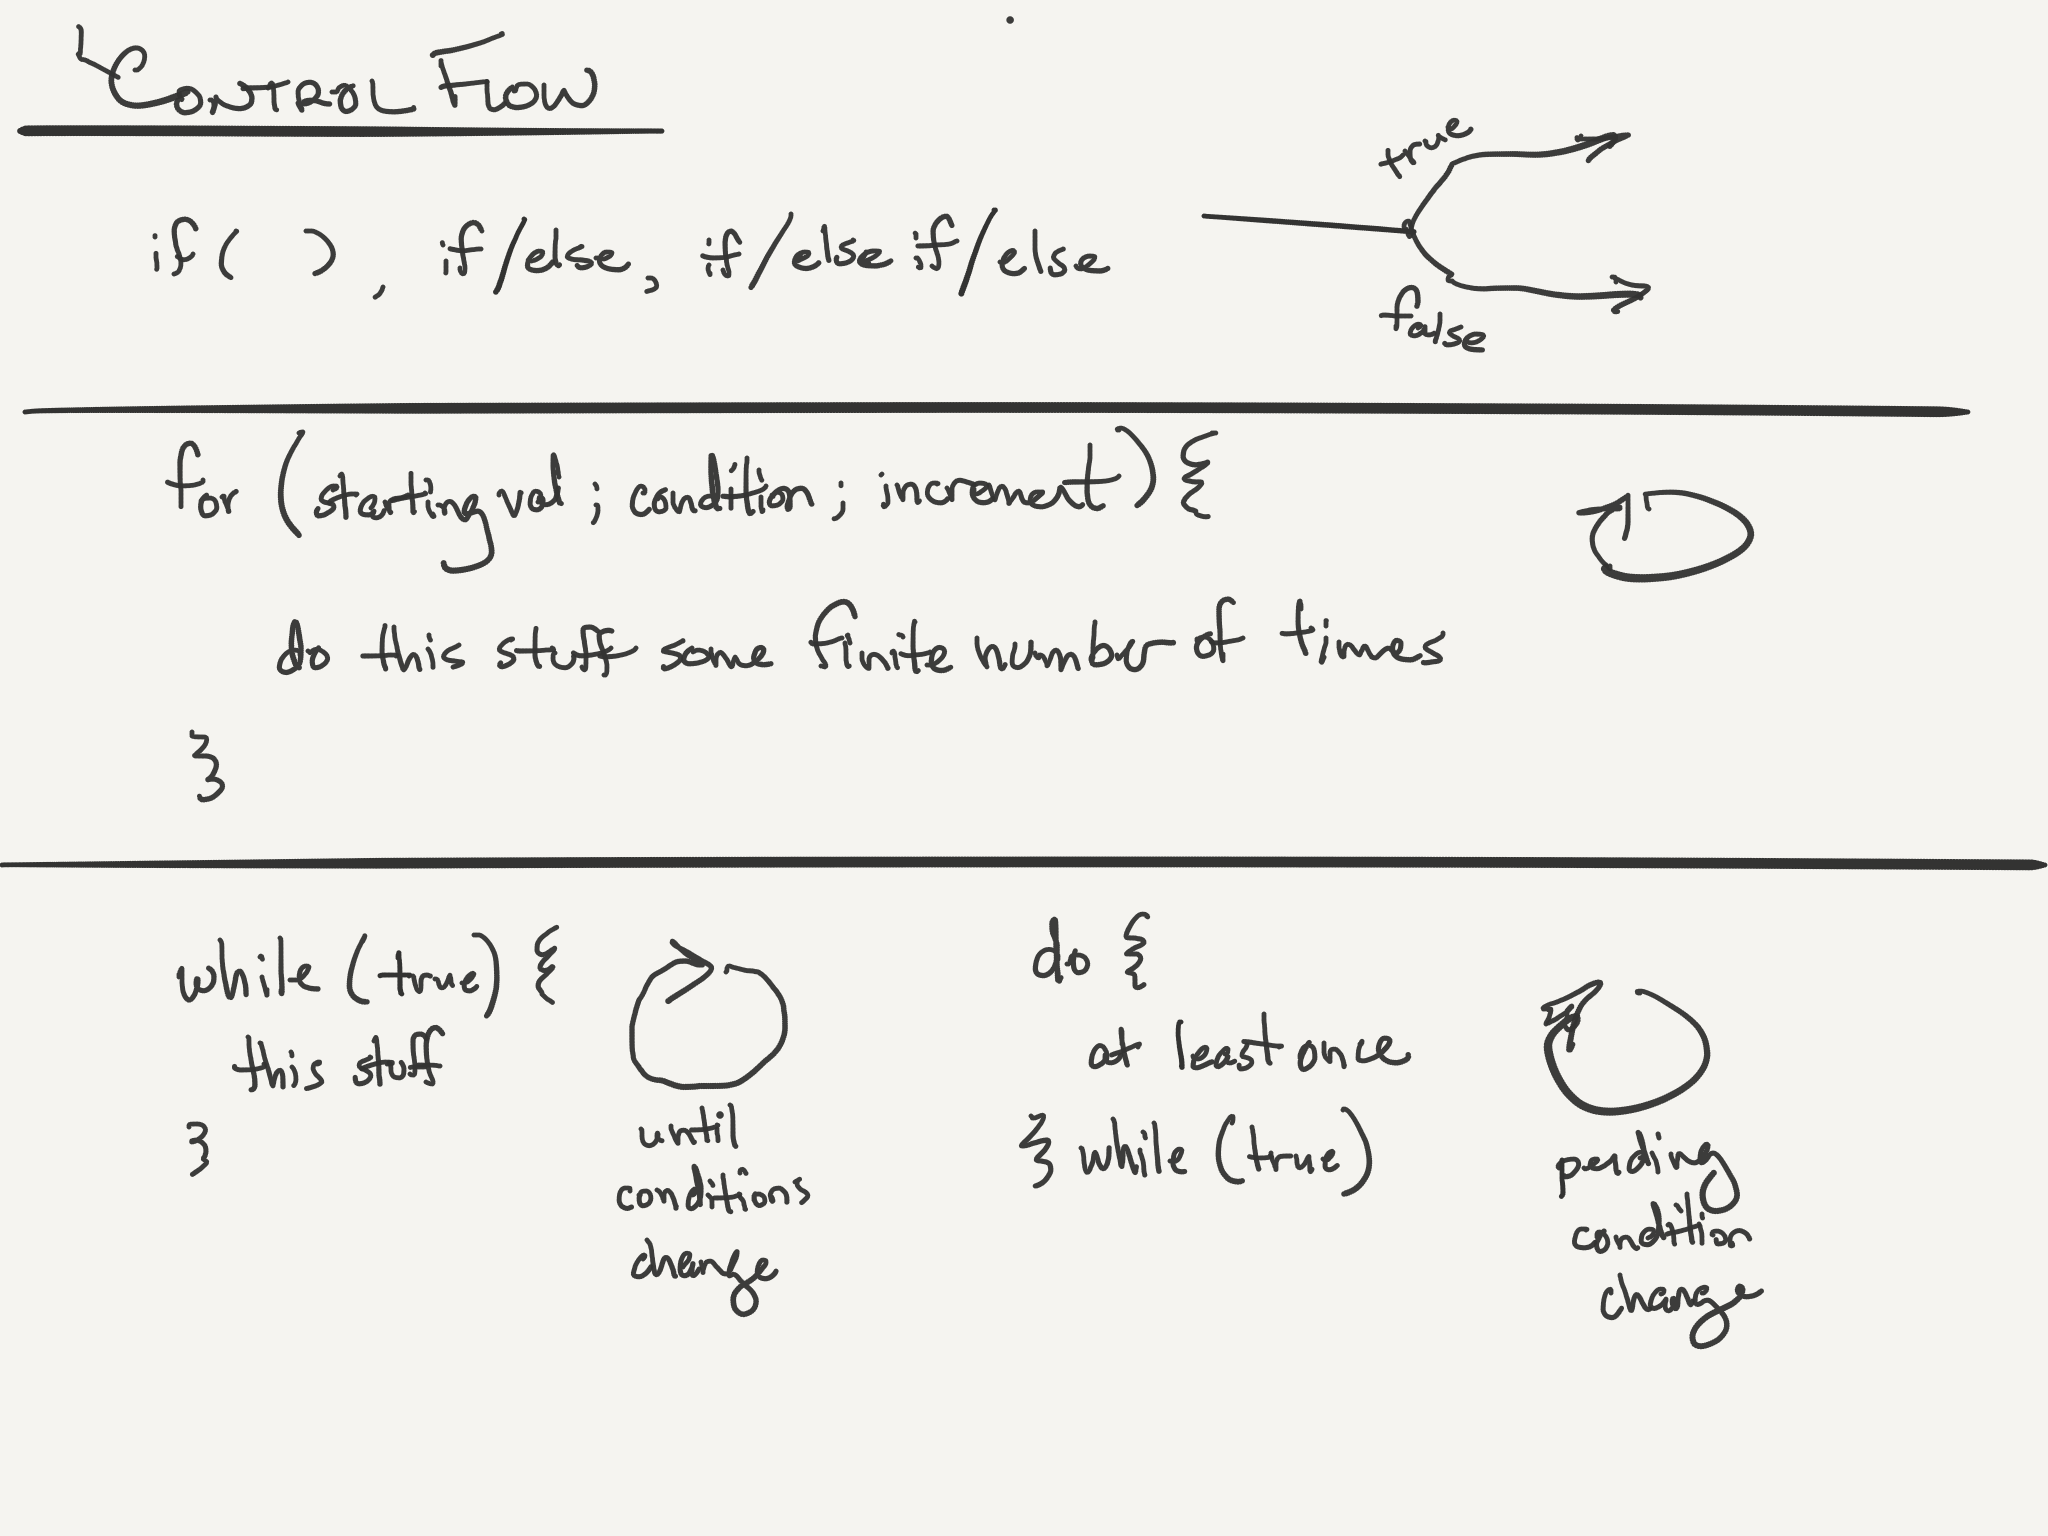 CONTROL FLOW
if ( ), if/else, if/else if/else
true
false
for (starting val; condition; increment) {
do this stuff some finite number of times
}
while (true) {
this stuff
}
until
conditions
change
do {
at least once
} while (true)
pending
condition
change